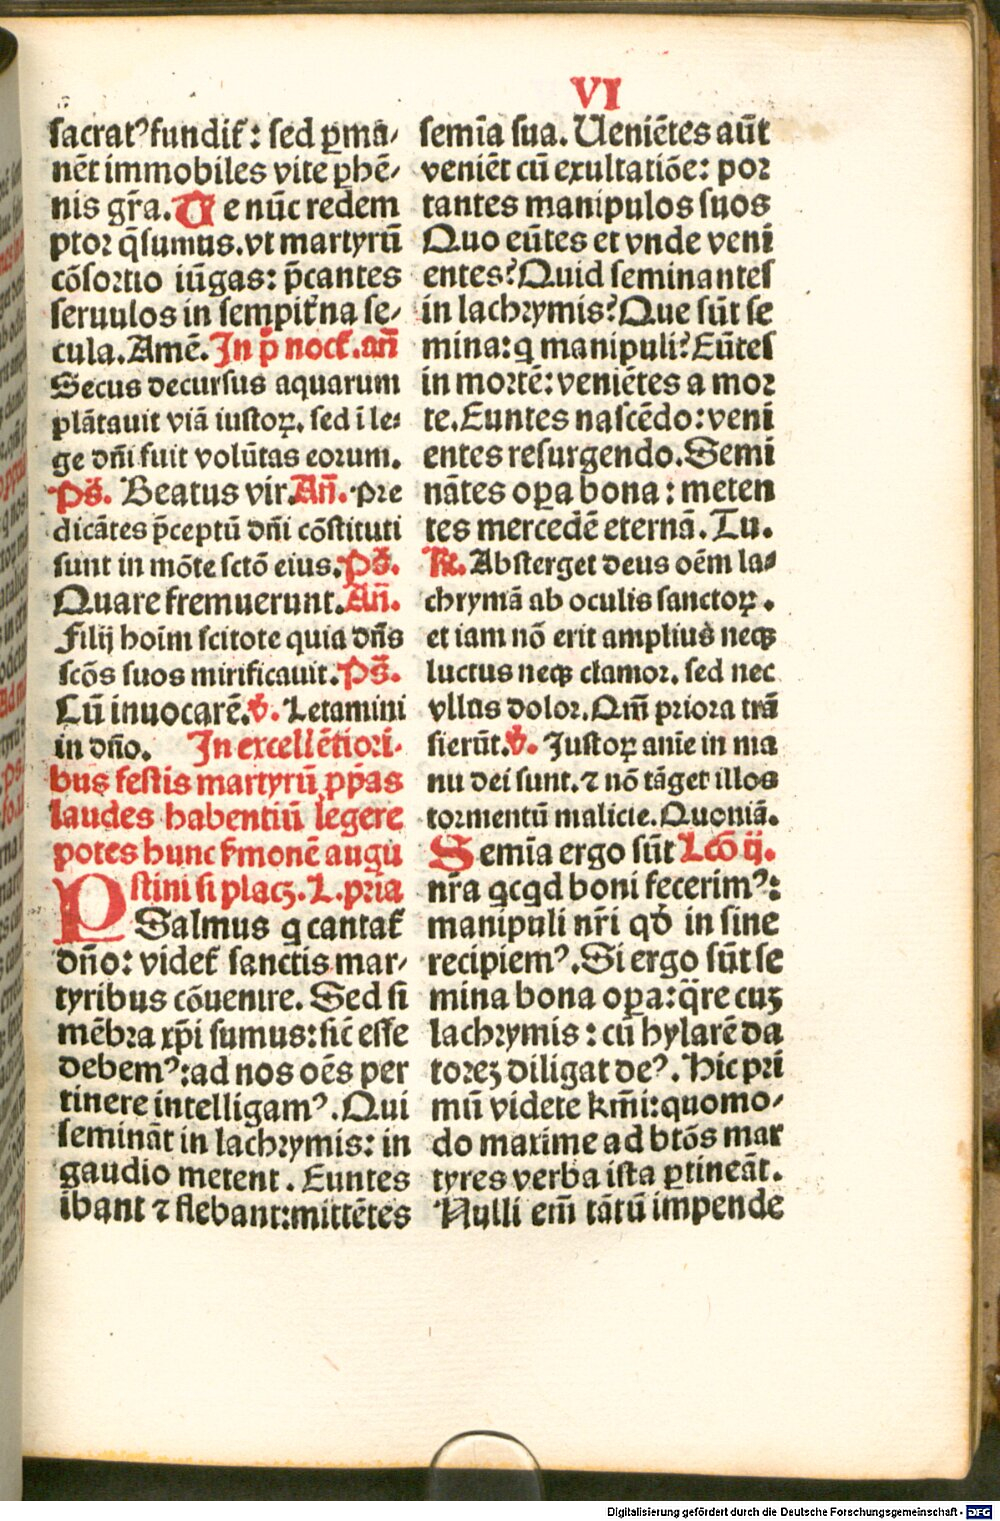 VI
sacratꝰ fundit᷑: sed ꝑmā-
nēt immobiles vite ꝑhē-
nis gr̄a. Te nūc redem
ptor q̄sumus. vt martyrū
cōsortio iūgas: p̄cantes
seruulos in sempit᷑na se-
cula. Amē. In p̄ noct᷑. an̄
Secus decursus aquarum
plātauit viā iustoꝝ. sed ī le-
ge dn̄i fuit volūtas eorum.
Ps̄. Beatus vir. An̄. Pre
dicātes p̄ceptū dn̄i cōstituti
sunt in mōte sctō eius. Ps̄.
Quare fremuerunt. An̄.
Filij hoīm scitote quia dn̄s
scōs suos mirificauit. Ps̄.
Cū inuocarē. v̄. Letamini
in dn̄o. In excellētiori-
bus festis martyrū ꝓpͥas
laudes habentiū legere
potes hunc s̄monē augu
stini si placꝫ. L. pria
Psalmus q cantat᷑
dn̄o: videt᷑ sanctis mar-
tyribus cōuenire. Sed si
mēbra xp̄i sumus: sic̄ esse
debemꝰ: ad nos oēs per
tinere intelligamꝰ. Qui
semināt in lachrymis: in
gaudio metent. Euntes
ibant ⁊ flebant: mittētes
semīa sua. Ueniētes aūt
veniēt cū exultatiōe: por
tantes manipulos suos
Quo eūtes et vnde venī
entes? Quid seminantes
in lachrymis? Que sūt se
mina: q manipuli? Eūtes
in mortē: veniētes a mor
te. Euntes nascēdo: venī
entes resurgendo. Semi
nātes oꝑa bona: meten
tes mercedē eternā. Tu.
℟. Absterget deus oēm la-
chrymā ab oculis sanctoꝝ.
et iam nō erit amplius neqꝫ
luctus neqꝫ clamor. sed nec
vllus dolor. Qm̄ priora trā
sierūt. v̄. Justoꝝ anīe in ma
nu dei sunt. ⁊ nō tāget illos
tormentū malicie. Quoniā.
Semīa ergo sūt Lcō ij.
nr̄a qcqd boni fecerimꝰ:
manipuli nr̄i qd̓ in fine
recipiemꝰ. Si ergo sūt se
mina bona oꝑa: q̄re cuꝫ
lachrymis: cū hylarē da
toreꝫ diligat deꝰ. Hic pri
mū videte km̄i: quomo-
do maxime ad btōs mar
tyres verba ista ꝑtineāt.
Nulli em̄ tātū impende
Digitalisierung gefördert durch die Deutsche Forschungsgemeinschaft - DFG